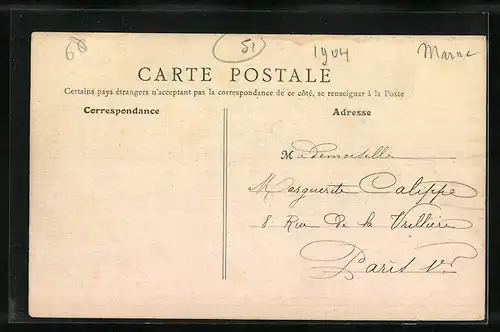 60
51
1904
Marne
CARTE POSTALE
Certains pays étrangers n'acceptant pas la correspondance de ce côté, se renseigner à la Poste
Correspondance
Adresse
Mademoiselle
Marguerite Calippe
8 Rue de la Vrillière
Paris